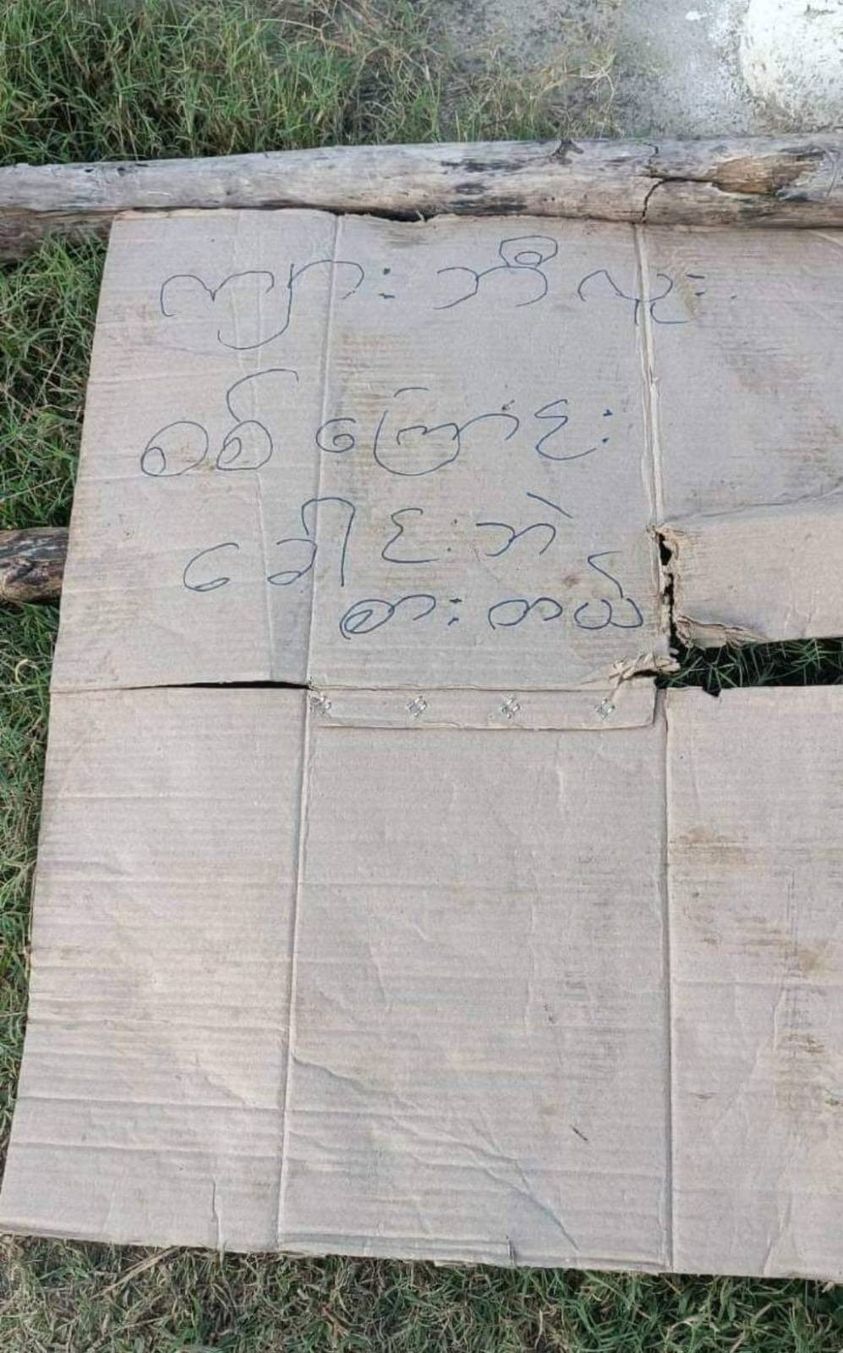 ကျား ဘီလူး
စစ် ကြောင်း
ခေါင်းဘဲ
စားတယ်